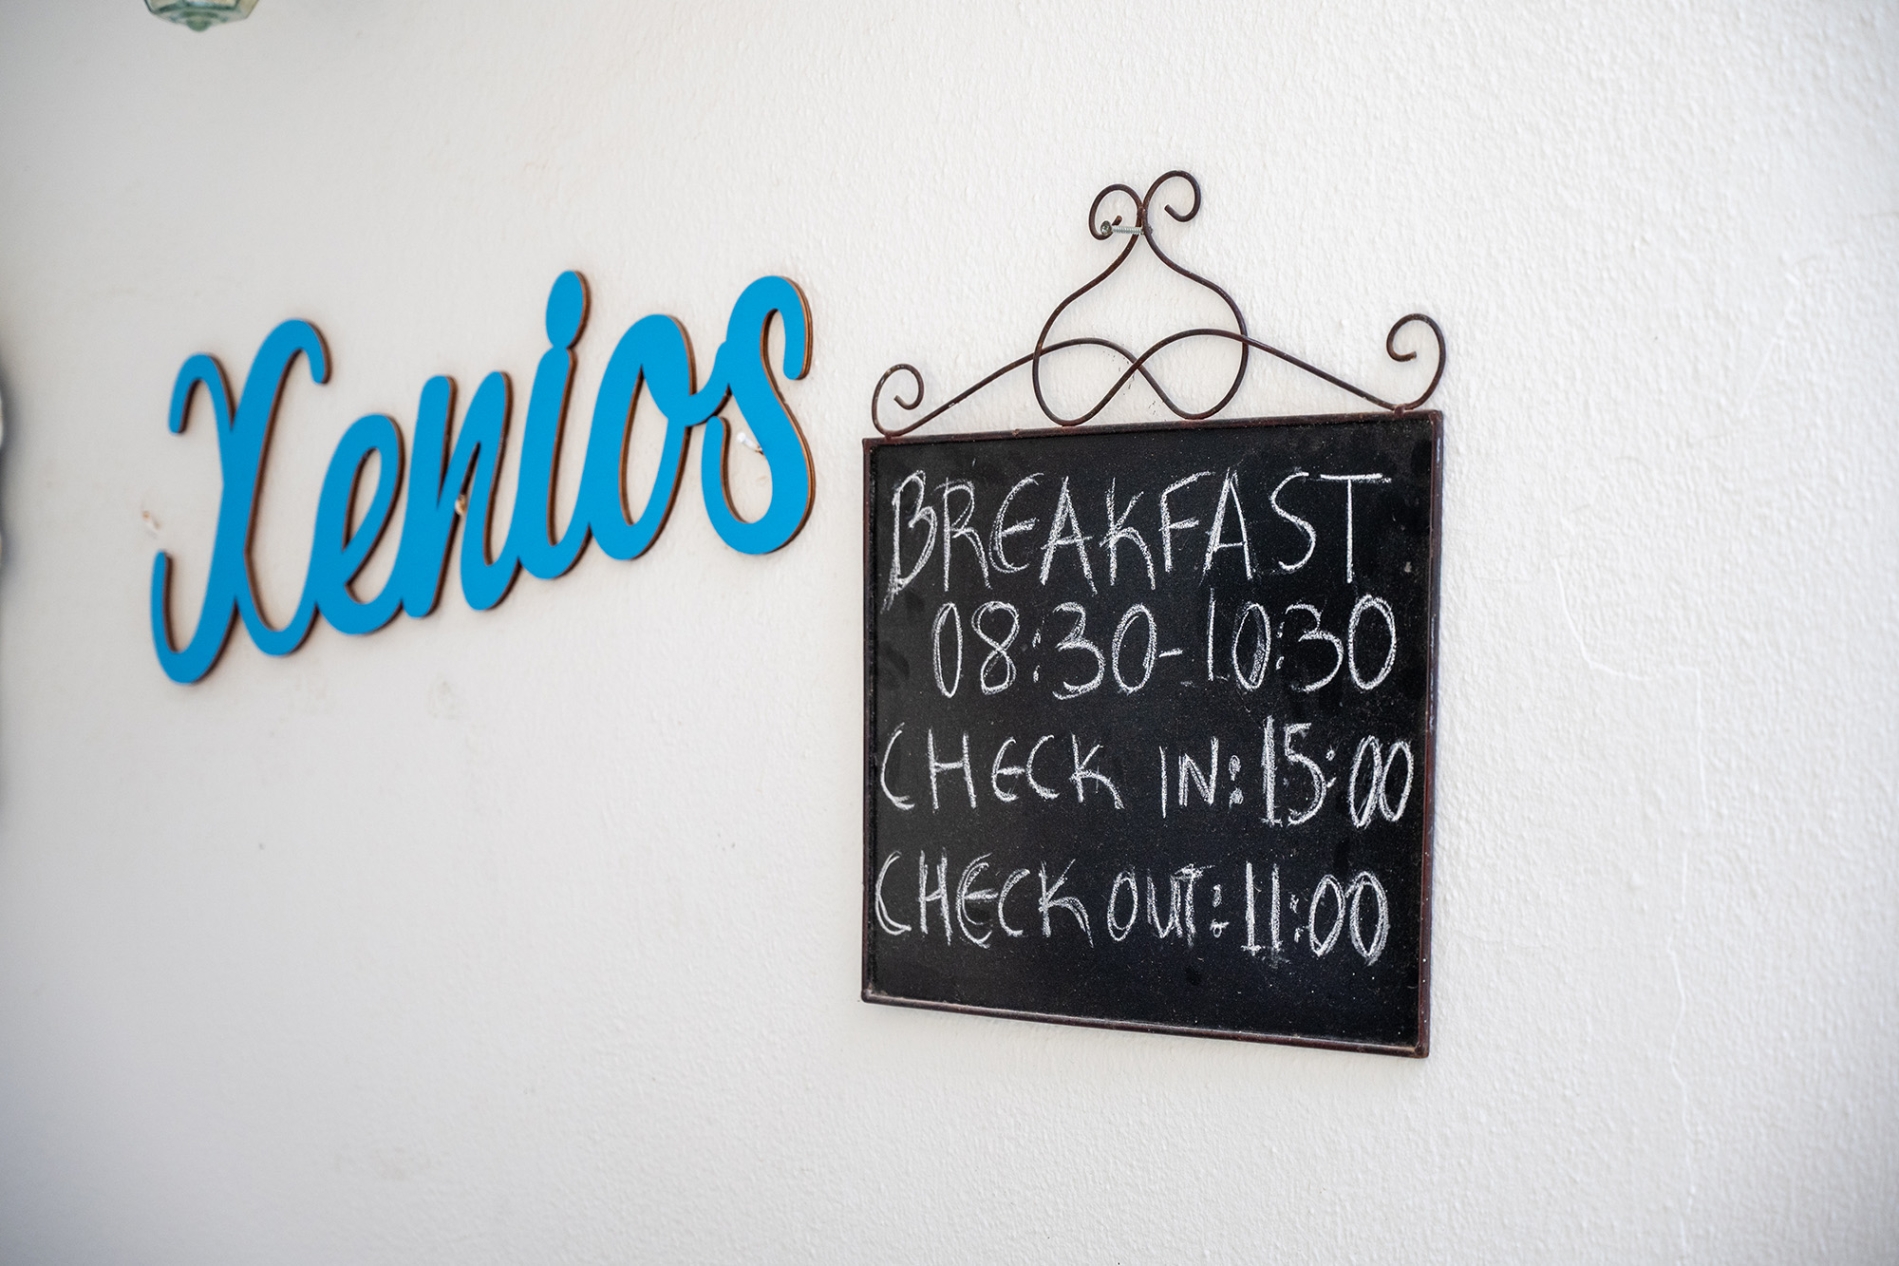 Xenios
BREAKFAST
08:30-10:30
CHECK IN: 15:00
CHECK OUT: 11:00